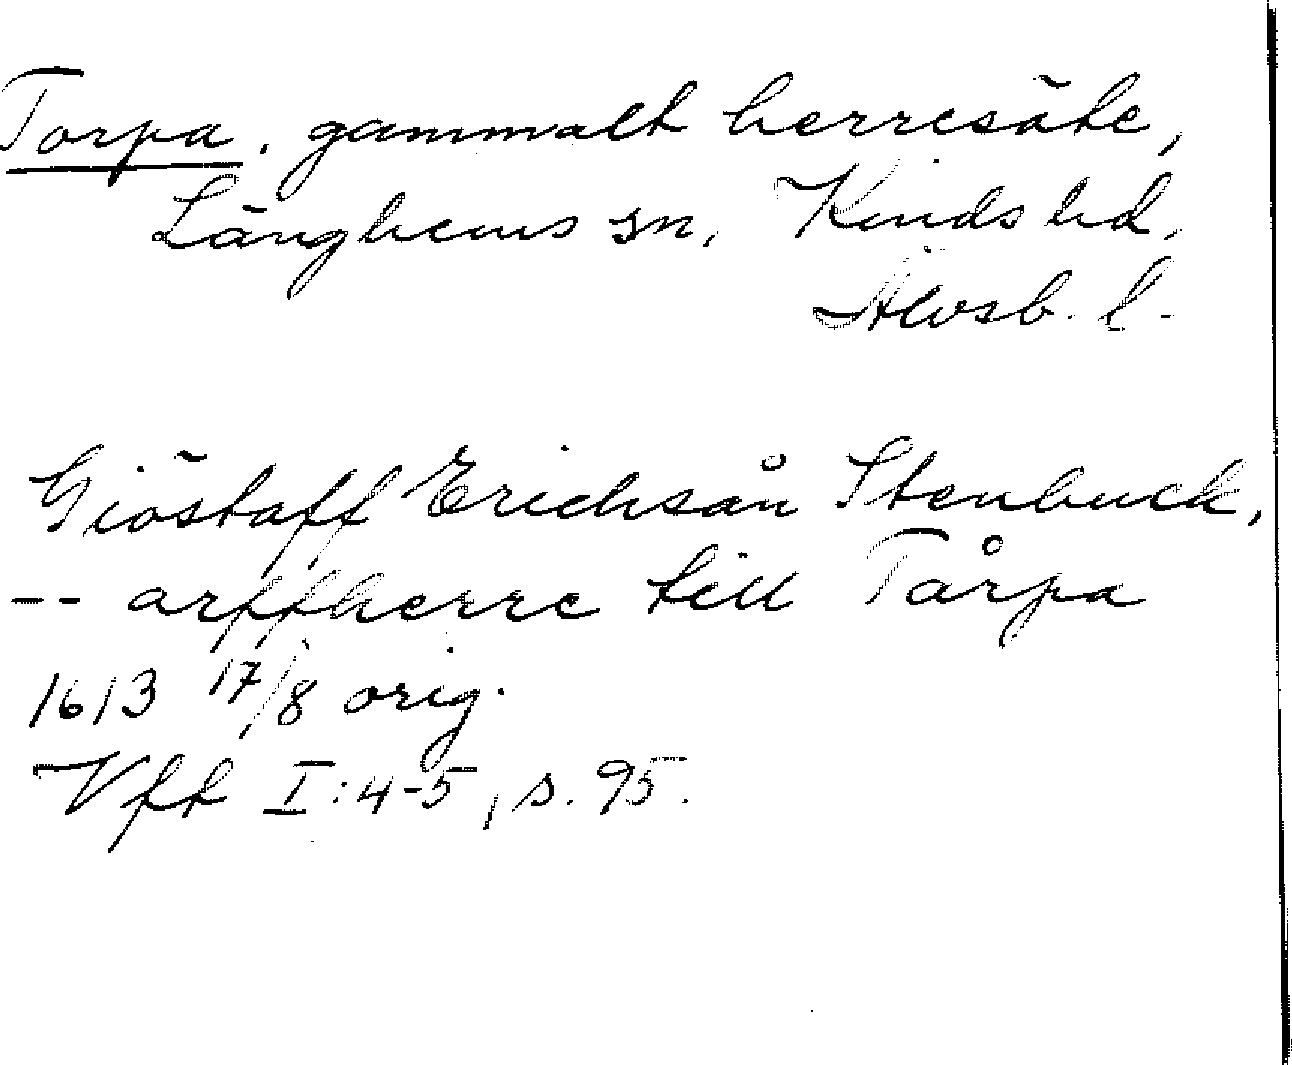 Torpa, gammalt herresäte,
Länghems sn, Kinds hd,
Älvsb. l.
Giöstaff Erichsån Stenbuck,
-- arffherre till Tårpa
1613 17/8 orig.
Vff I:4-5, s. 95.